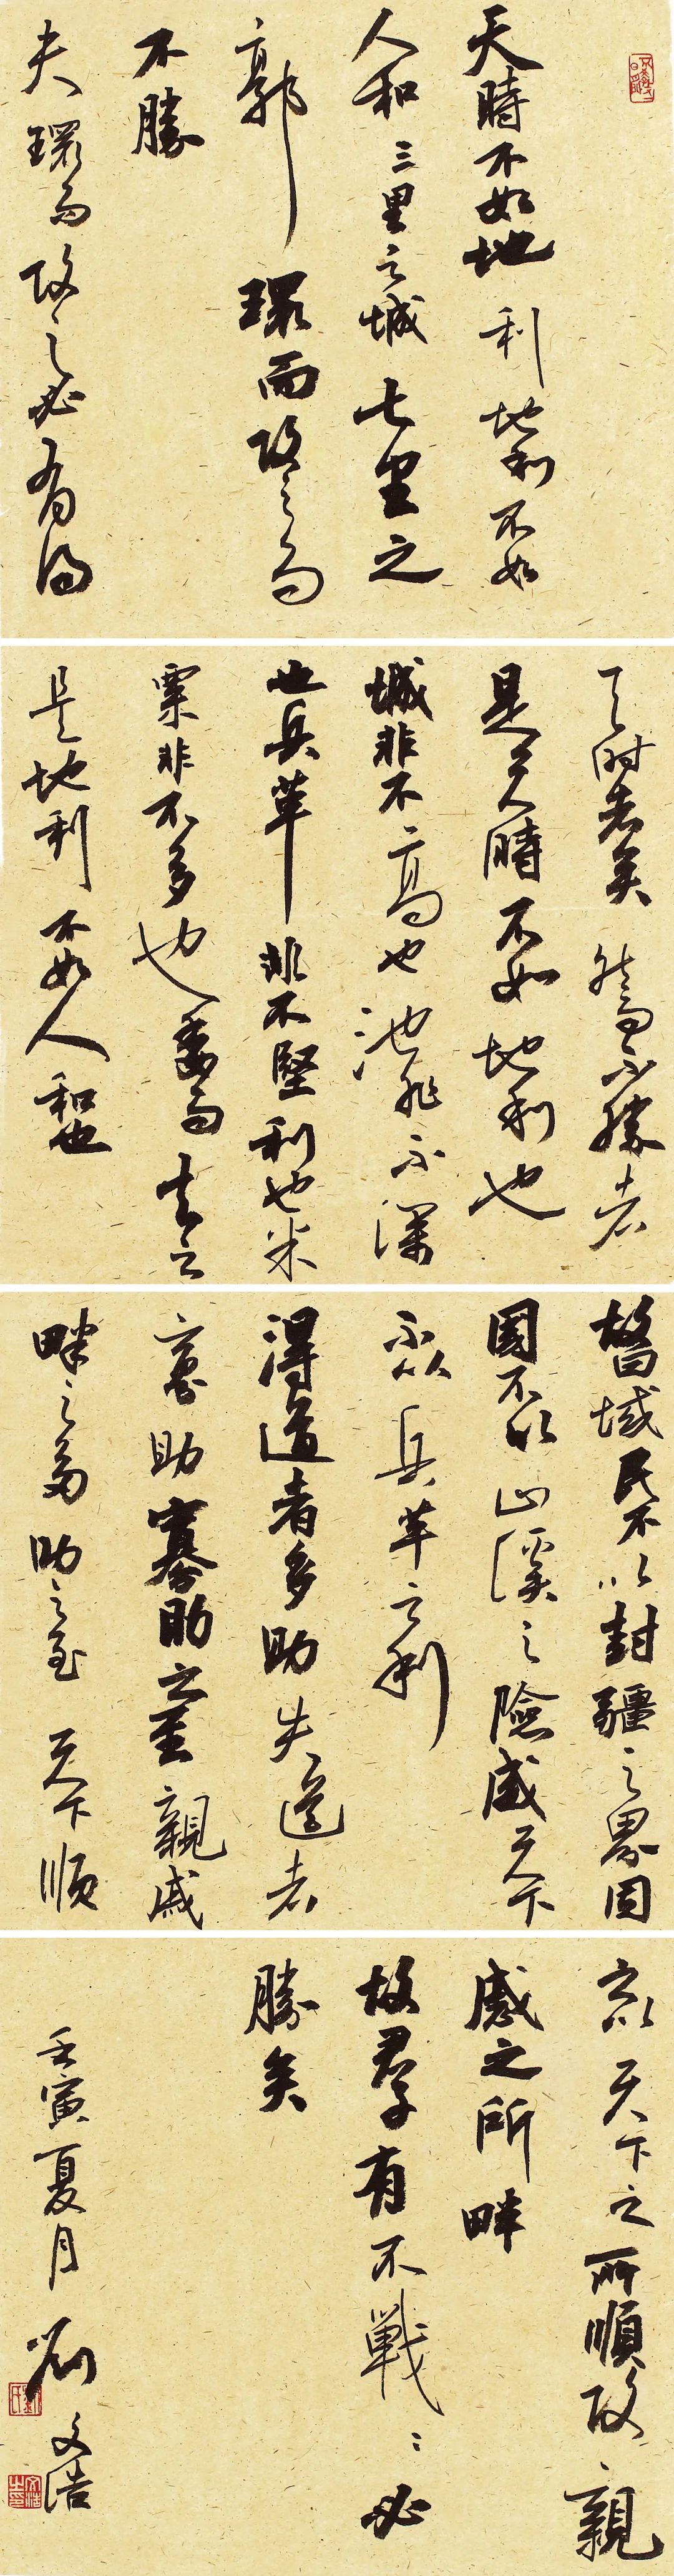 天時不如地利地利不如
人和三里之城七里之
郭環而攻之而
不勝
夫環而攻之必有得
天时者矣然而不勝者
是天時不如地利也
城非不高也池非不深
也兵革非不堅利也米
粟非不多也委而去之
是地利不如人和也
故曰域民不以封疆之界固
國不以山溪之險威天下
不以兵革之利
得道者多助失道者
寡助寡助之至親戚
畔之多助之至天下順
之以天下之所順攻親
戚之所畔
故君子有不戰〻必
勝矣
壬寅夏月劉文浩